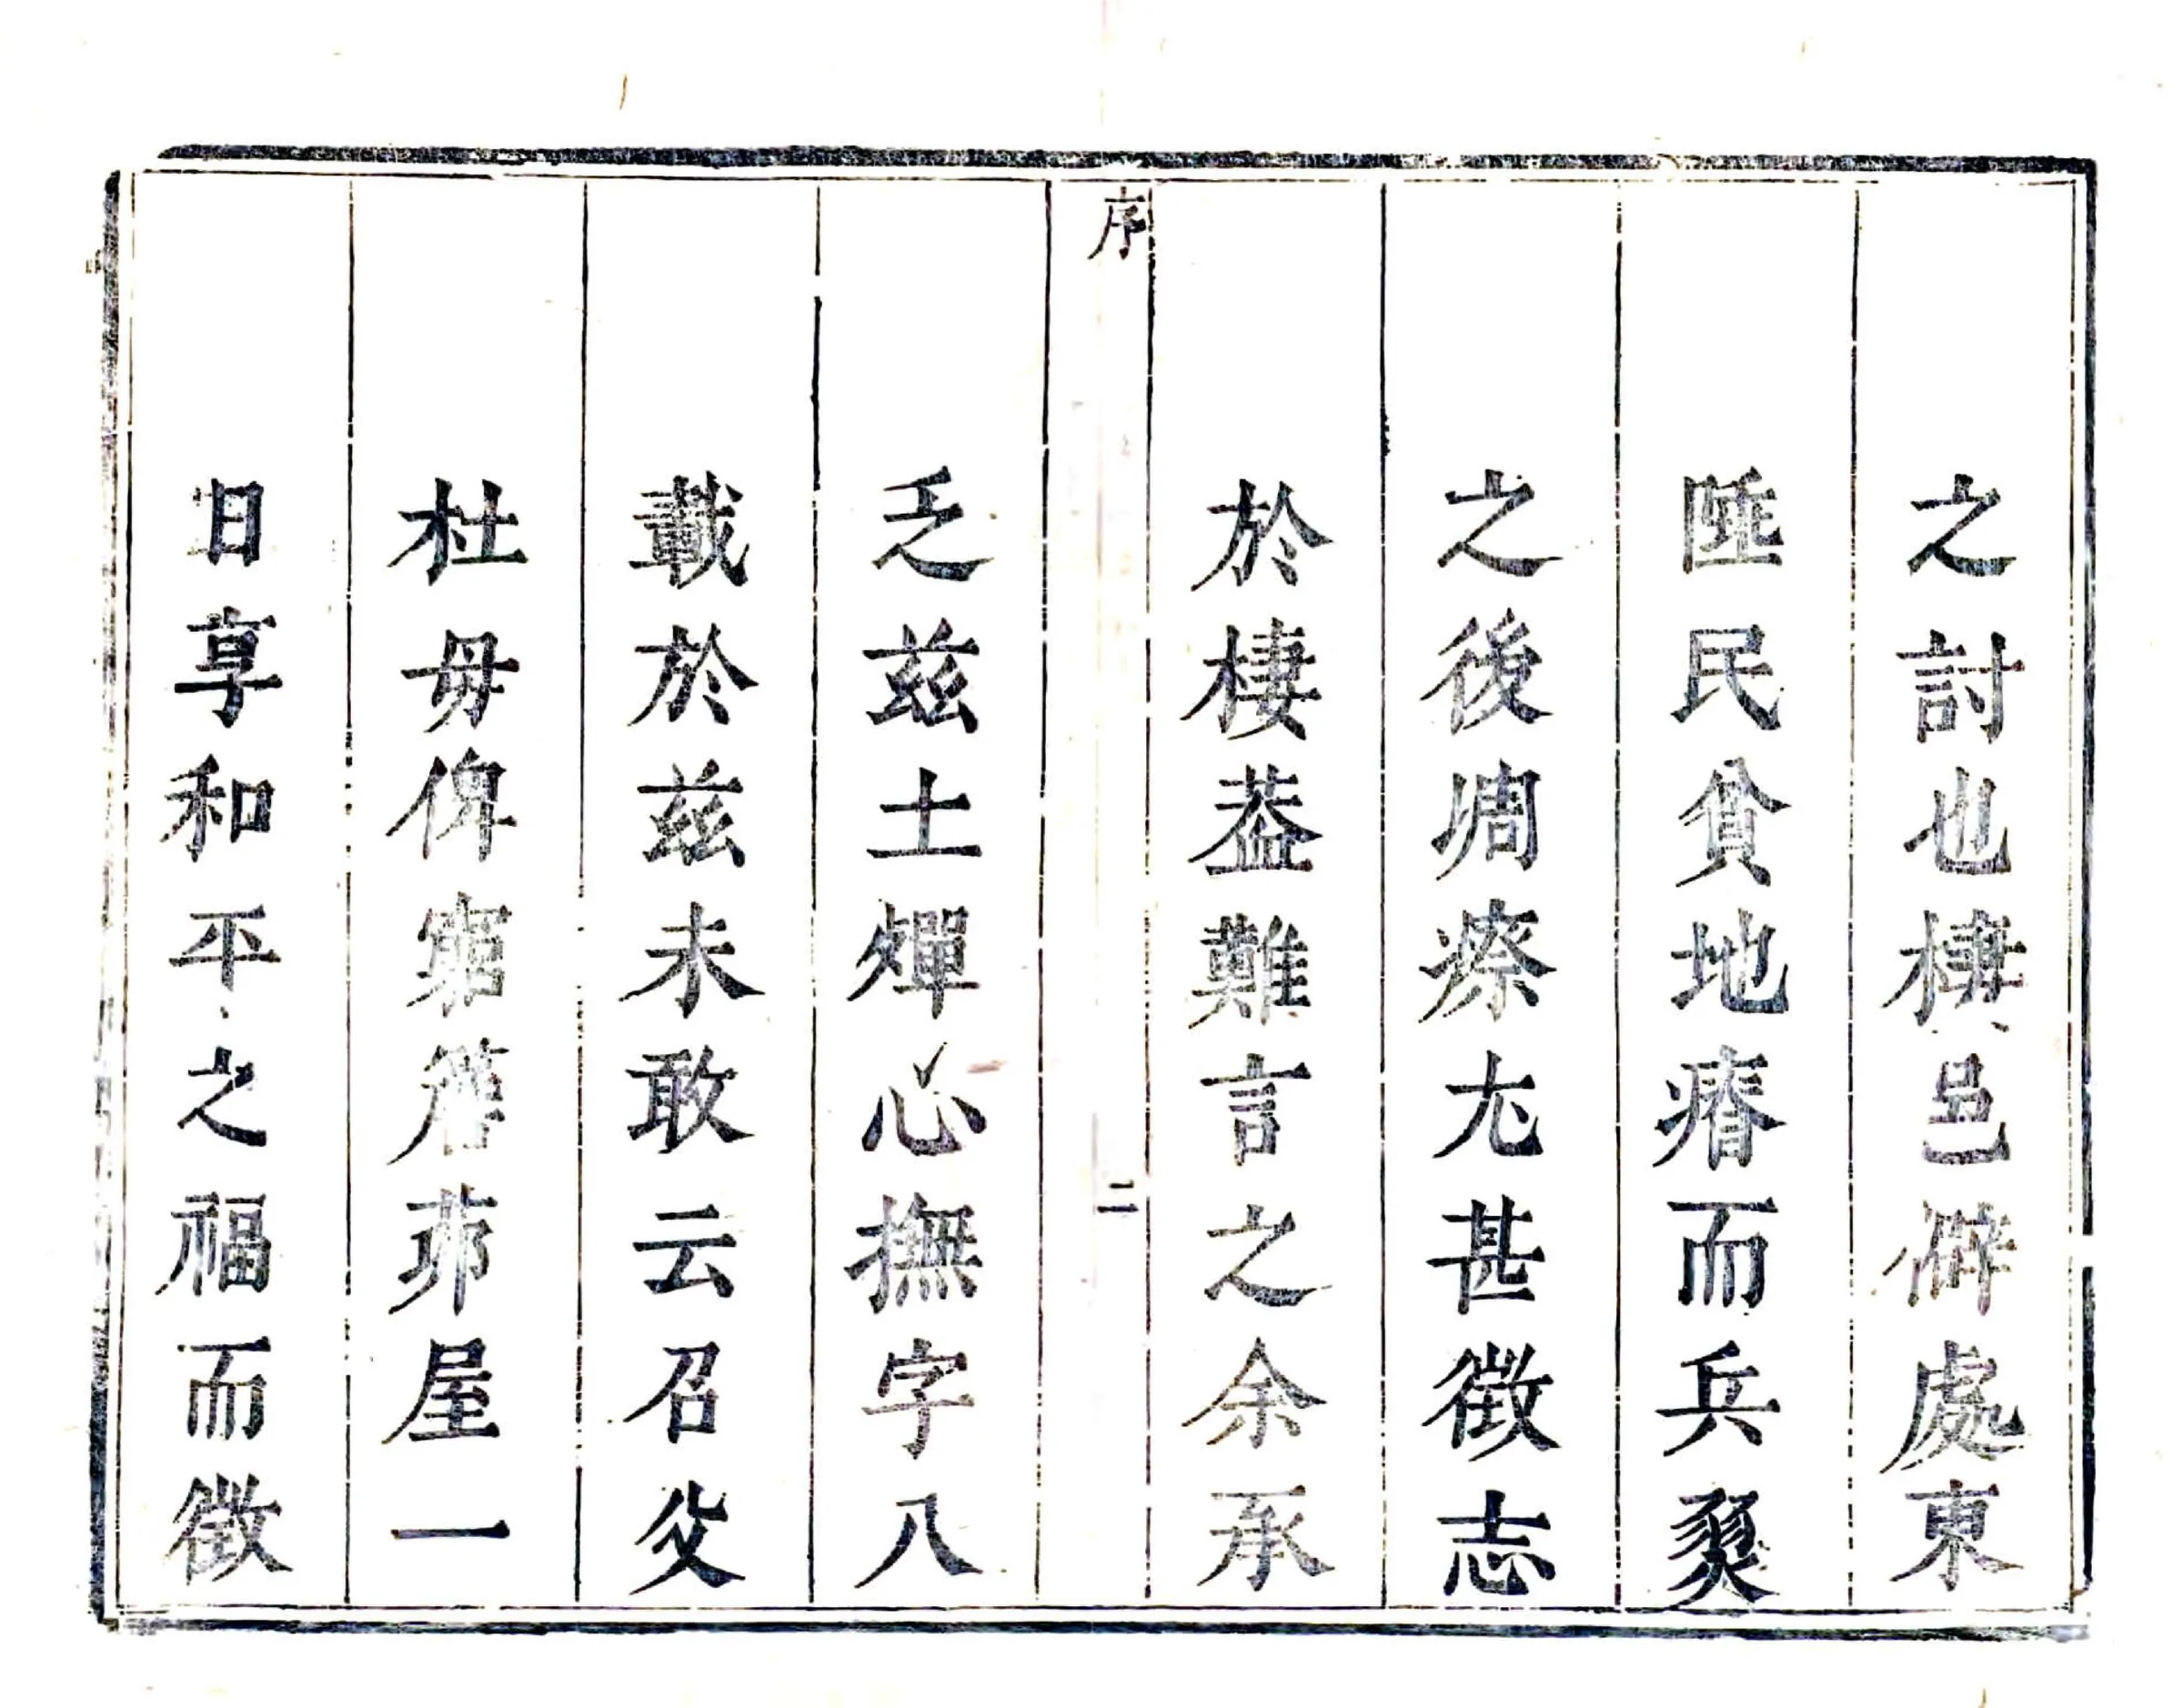 之討也棲邑僻處東
陲民貧地瘠而兵燹
之後凋瘵尤甚徵志
於棲葢難言之余承
序
二
乏兹土殫心撫字八
載於兹未敢云召父
杜母俾窮簷茆屋一
日享和平之福而徵